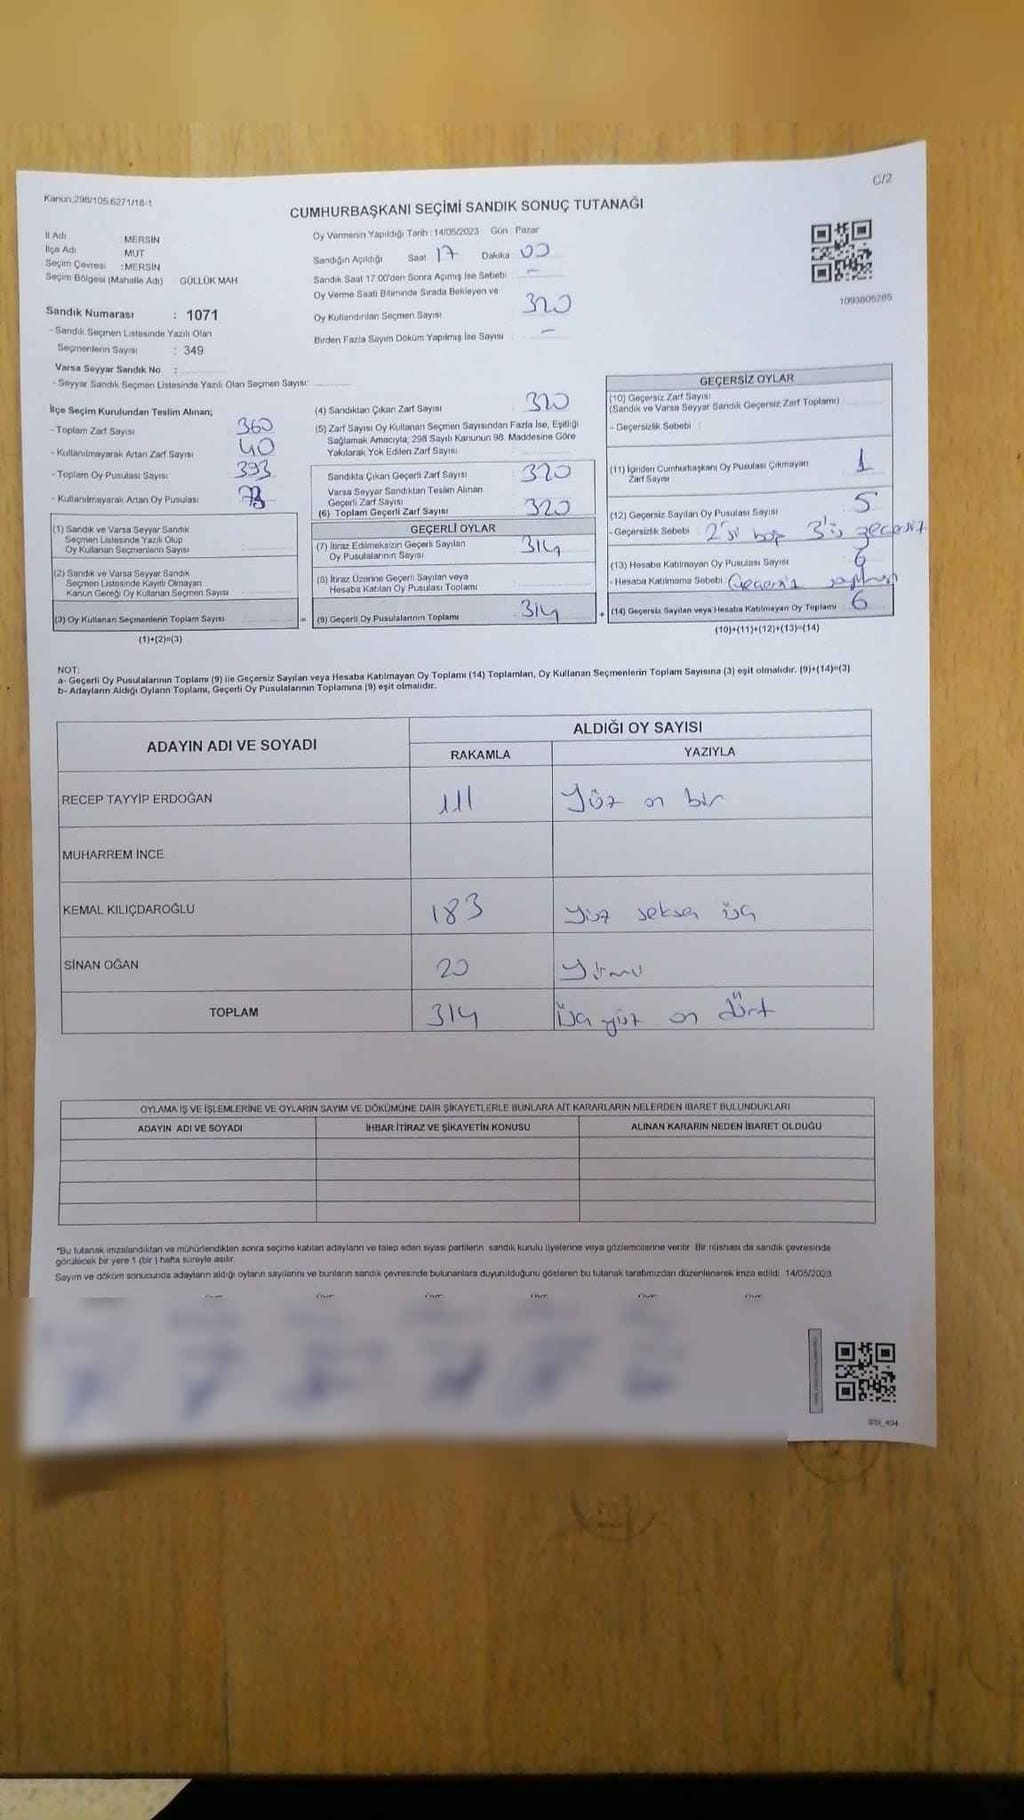 C/2
Kanun:298/105 6271/18-1
CUMHURBAŞKANI SEÇİMİ SANDIK SONUÇ TUTANAĞI
İl Adı : MERSİN
İlçe Adı : MUT
Seçim Çevresi : MERSİN
Seçim Bölgesi (Mahalle Adı) GÜLLÜK MAH
Sandık Numarası : 1071
- Sandık Seçmen Listesinde Yazılı Olan
Seçmenlerin Sayısı : 349
Varsa Seyyar Sandık No :
- Seyyar Sandık Seçmen Listesinde Yazılı Olan Seçmen Sayısı:
Oy Vermenin Yapıldığı Tarih : 14/05/2023 Gün : Pazar
Sandığın Açıldığı Saat 17 Dakika 00
Sandık Saat 17:00'den Sonra Açımış İse Sebebi : -
Oy Verme Saati Bitiminde Sırada Bekleyen ve
Oy Kullandırılan Seçmen Sayısı 320
Birden Fazla Sayım Döküm Yapılmış İse Sayısı -
1093605285
İlçe Seçim Kurulundan Teslim Alınan;
- Toplam Zarf Sayısı 360
- Kullanılmayarak Artan Zarf Sayısı 40
- Toplam Oy Pusulası Sayısı 393
- Kullanılmayarak Artan Oy Pusulası 73
(1) Sandık ve Varsa Seyyar Sandık
Seçmen Listesinde Yazılı Olup
Oy Kullanan Seçmenlerin Sayısı
(2) Sandık ve Varsa Seyyar Sandık
Seçmen Listesinde Kayıtlı Olmayan
Kanun Gereği Oy Kullanan Seçmen Sayısı
(3) Oy Kullanan Seçmenlerin Toplam Sayısı
(1)+(2)=(3)
(4) Sandıktan Çıkan Zarf Sayısı 320
(5) Zarf Sayısı Oy Kullanan Seçmen Sayısından Fazla İse, Eşitliği
Sağlamak Amacıyla, 298 Sayılı Kanunun 98. Maddesine Göre
Yakılarak Yok Edilen Zarf Sayısı
Sandıkta Çıkan Geçerli Zarf Sayısı 320
Varsa Seyyar Sandıktan Teslim Alınan
Geçerli Zarf Sayısı
(6) Toplam Geçerli Zarf Sayısı 320
GEÇERLİ OYLAR
(7) İtiraz Edilmeksizin Geçerli Sayılan
Oy Pusulalarının Sayısı 314
(8) İtiraz Üzerine Geçerli Sayılan veya
Hesaba Katılan Oy Pusulası Toplamı
= (9) Geçerli Oy Pusulalarının Toplamı 314 +
GEÇERSİZ OYLAR
(10) Geçersiz Zarf Sayısı
(Sandık ve Varsa Seyyar Sandık Geçersiz Zarf Toplamı)
- Geçersizlik Sebebi :
(11) İçinden Cumhurbaşkanı Oy Pusulası Çıkmayan
Zarf Sayısı 1
(12) Geçersiz Sayılan Oy Pusulası Sayısı 5
- Geçersizlik Sebebi 2'si boş 3'ü geçersiz
(13) Hesaba Katılmayan Oy Pusulası Sayısı 6
- Hesaba Katılmama Sebebi Geçersiz
(14) Geçersiz Sayılan veya Hesaba Katılmayan Oy Toplamı 6
(10)+(11)+(12)+(13)=(14)
NOT:
a- Geçerli Oy Pusulalarının Toplamı (9) ile Geçersiz Sayılan veya Hesaba Katılmayan Oy Toplamı (14) Toplamları, Oy Kullanan Seçmenlerin Toplam Sayısına (3) eşit olmalıdır. (9)+(14)=(3)
b- Adayların Aldığı Oyların Toplamı, Geçerli Oy Pusulalarının Toplamına (9) eşit olmalıdır.
ADAYIN ADI VE SOYADI
ALDIĞI OY SAYISI
RAKAMLA YAZIYLA
RECEP TAYYİP ERDOĞAN 111 Yüz on bir
MUHARREM İNCE
KEMAL KILIÇDAROĞLU 183 Yüz seksen üç
SİNAN OĞAN 20 Yirmi
TOPLAM 314 Üç yüz on dört
OYLAMA İŞ VE İŞLEMLERİNE VE OYLARIN SAYIM VE DÖKÜMÜNE DAİR ŞİKAYETLERLE BUNLARA AİT KARARLARIN NELERDEN İBARET BULUNDUKLARI
ADAYIN ADI VE SOYADI İHBAR İTİRAZ VE ŞİKAYETİN KONUSU ALINAN KARARIN NEDEN İBARET OLDUĞU
*Bu tutanak imzalandıktan ve mühürlendikten sonra seçime katılan adayların ve talep eden siyasi partilerin sandık kurulu üyelerine veya gözlemcilerine verilir. Bir nüshası da sandık çevresinde
görülecek bir yere 1 (bir) hafta süreyle asılır.
Sayım ve döküm sonucunda adayların aldığı oyların sayılarını ve bunların sandık çevresinde bulunanlara duyurulduğunu gösteren bu tutanak tarafımızdan düzenlenerek imza edildi. 14/05/2023